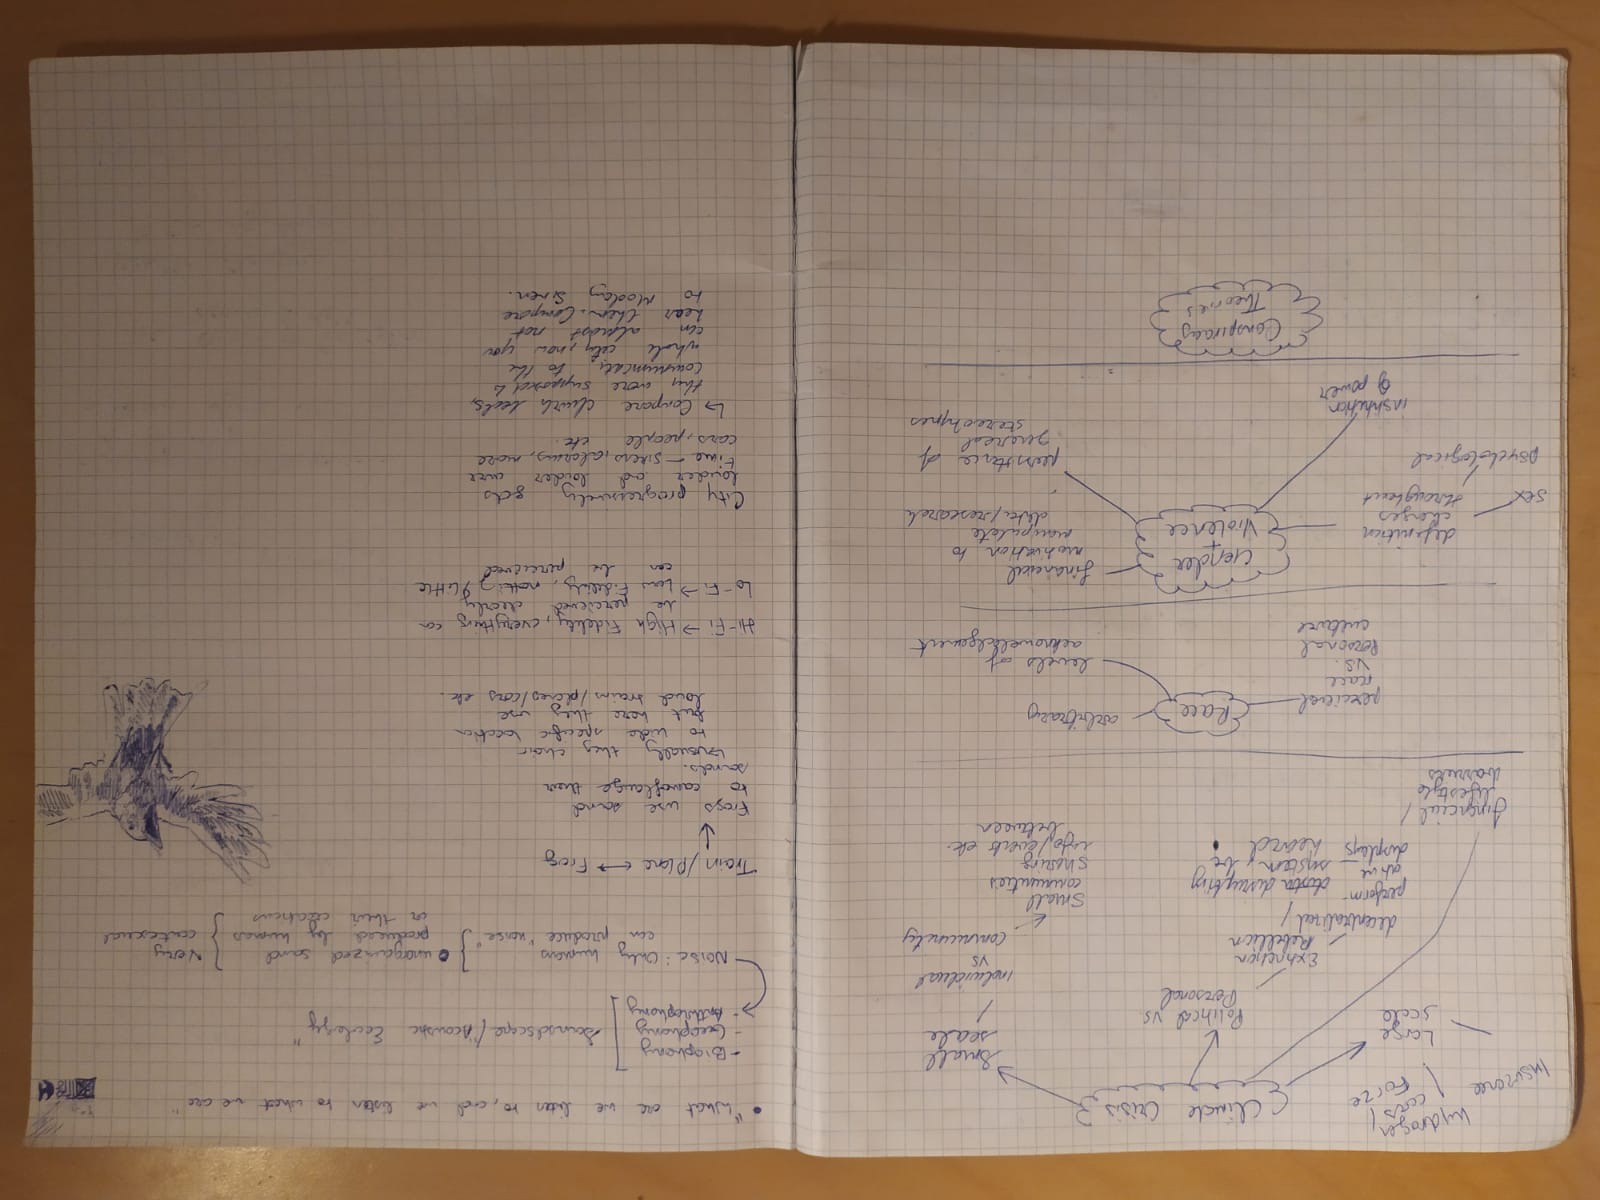 Climate Crisis
hydrogen
cars/
Forze
Insurance
Large
scale
Political vs
Personal
Small
scale
Individual
vs
community
Small
communities
sharing
info/events etc.
between
Extinction
Rebellion
decentralized
perform-
ative
displays
disrupting
system, be
heard
financial/
lifestyle
barriers
Race
arbitrary
percieved
race
vs.
Personal
culture
levels of
acknowledgement
Gender
+
Violence
financial
motivation to
manipulate
data/research
definition
changes
throughout
sex
psychological
institution
of power
persistence of
general
stereotypes
Conspiracy
Theories
• "What are we listen to, and we listen to what we are"
- Biophony
- Geophony
- Anthrophony
Soundscape/"Acoustic Ecology"
Noise: Only humans
can produce "noise"
• unorganized sand
produced by humans
or their creations
Very
contexual
Train/Plane ↔ Frog
Frogs use sand
to camoflauge their
sands.
↳ usually they choir
to hide specific location
but here they use
loud trains/planes/cars etc.
Hi-Fi → High Fidelity, everything can
be percieved clearly
Lo-Fi → Low Fidelity, nothing / little
can be percieved
City progressively gets
louder and louder over
time — sirens, alarms, more
cars, people etc.
↳ Compare church bells,
they were supposed to
communicate to the
whole city, now you
can almost not
hear them. Compare
to Monday Siren.